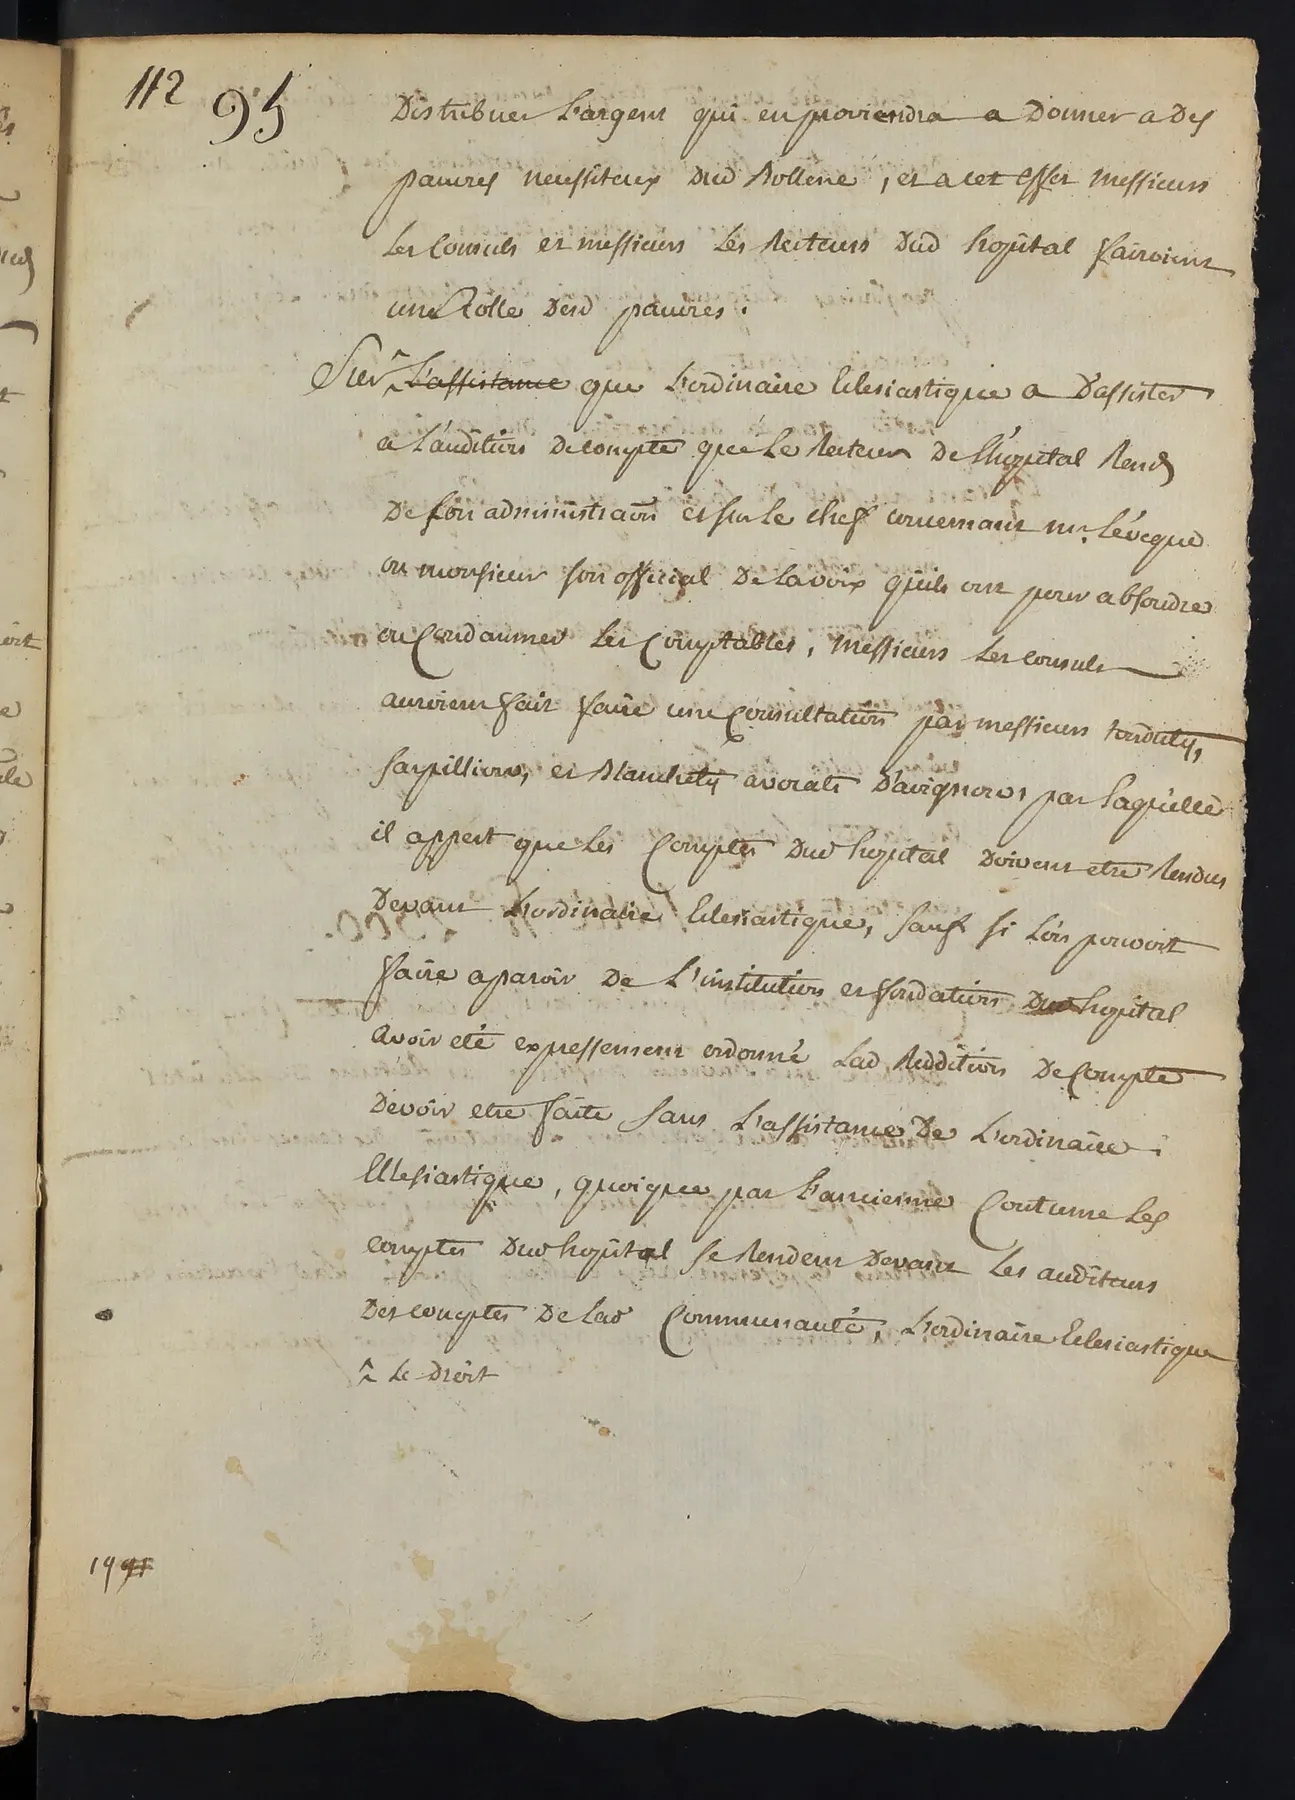 112
95
Distribuer l'argent qui en proviendra a Donner a Des
pauvres necessiteux Dud Bollene, et a cet effet messieurs
les Consuls et messieurs les Recteurs Dud hopital fairoient
une Rolle Desd pauvres.
Sur ^ L'assistance que L'ordinaire Eclesiastique a D'assister
a L'audition De compte que Le Recteur De L'hopital Rend
De son administraon et sur le chef concernant mr. L'éveque
ou monsieur son official De la voix qu'ils ont pour absoudre
ou Condamner les Comptables, messieurs les consuls
auroient fait faire une Consultation par messieurs tonduty,
sarpillion, et Blanchety avocats D'avignon, par laquelle
il appert que les Comptes Dud hopital Doivent etre Rendus
Devant L'ordinaire Eclesiastique, sauf si L'on pouvoit
faire aparoir De L'institution et fondation Dud hopital
avoir eté expressement ordonné Lad Reddition De Compte
Devoir etre faite sans L'assistance De L'ordinaire
Ecclesiastique, quoique par L'ancienne Coutume les
comptes Dud hopital se Rendent Devant les auditeurs
Des comptes De lad Communauté, L'ordinaire Eclesiastique
^ Le Droit